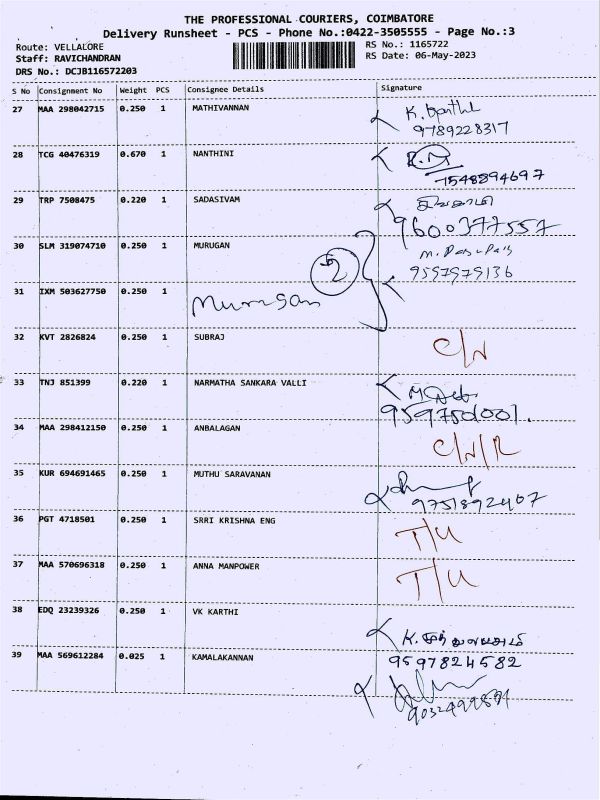 THE PROFESSIONAL COURIERS, COIMBATORE
Delivery Runsheet - PCS - Phone No.:0422-3505555 - Page No.:3
Route: VELLALORE
RS No.: 1165722
Staff: RAVICHANDRAN
RS Date: 06-May-2023
DRS No.: DCJB116572203
S No Consignment No Weight PCS Consignee Details Signature
27 MAA 298042715 0.250 1 MATHIVANNAN
9789228317
28 TCG 40476319 0.670 1 NANTHINI
7548894697
29 TRP 7508475 0.220 1 SADASIVAM
9600377557
30 SLM 319074710 0.250 1 MURUGAN
9597979136
31 IXM 503627750 0.250 1 Murugan 2
32 KVT 2826824 0.250 1 SUBRAJ C/N
33 TNJ 851399 0.220 1 NARMATHA SANKARA VALLI
34 MAA 298412150 0.250 1 ANBALAGAN C/N/R
35 KUR 694691465 0.250 1 MUTHU SARAVANAN
9751892407
36 PGT 4718501 0.250 1 SRRI KRISHNA ENG T/U
37 MAA 570696318 0.250 1 ANNA MANPOWER T/U
38 EDQ 23239326 0.250 1 VK KARTHI
39 MAA 569612284 0.025 1 KAMALAKANNAN 9597824582